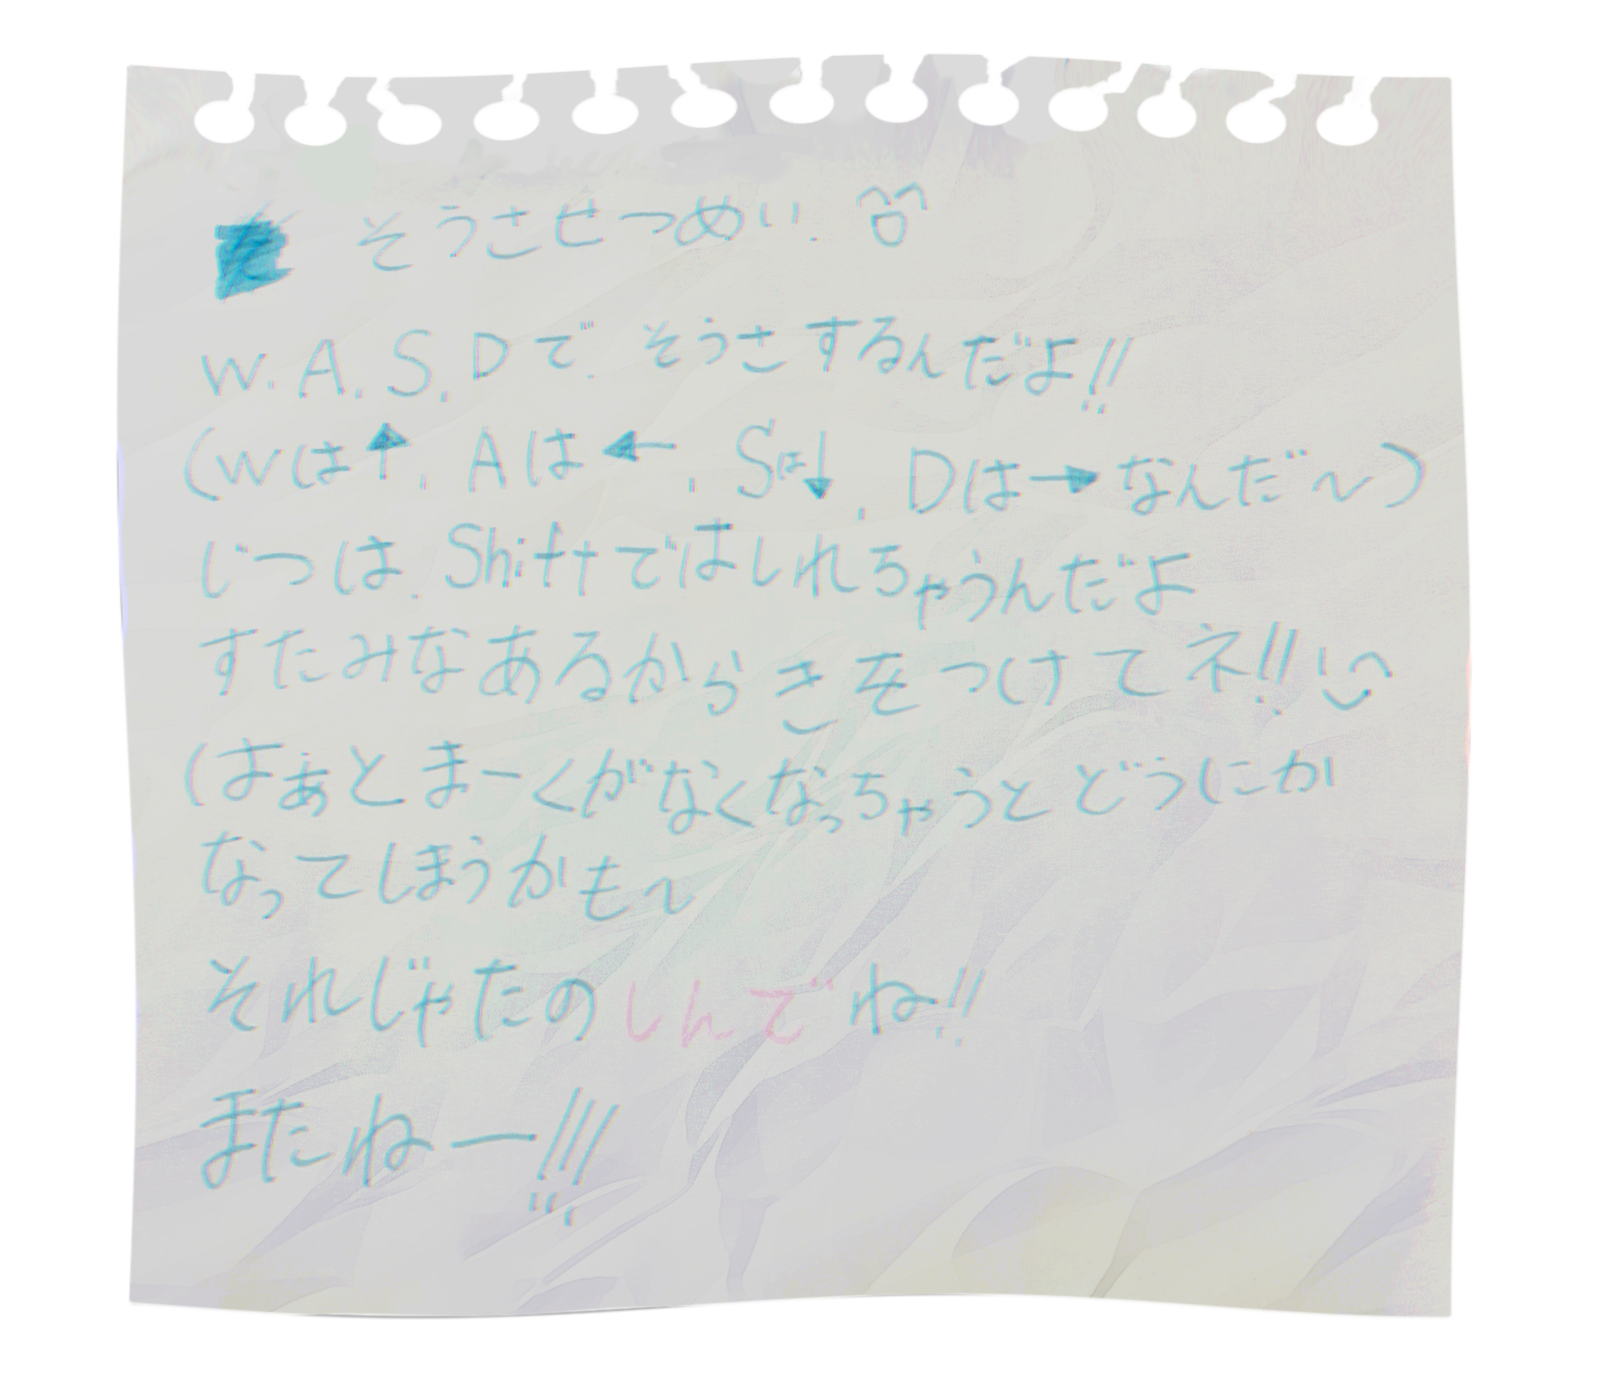 そうさせつめい.
W. A. S. Dで. そうさするんだよ!!
(Wは↑. Aは←. Sは↓. Dは→なんだ〜)
じつは. Shiftではしれちゃうんだよ
すたみなあるからきをつけてネ!!
(はぁとまーくがなくなっちゃうとどうにか
なってしまうかも〜
それじゃたのしんでね!!
またねー!!!